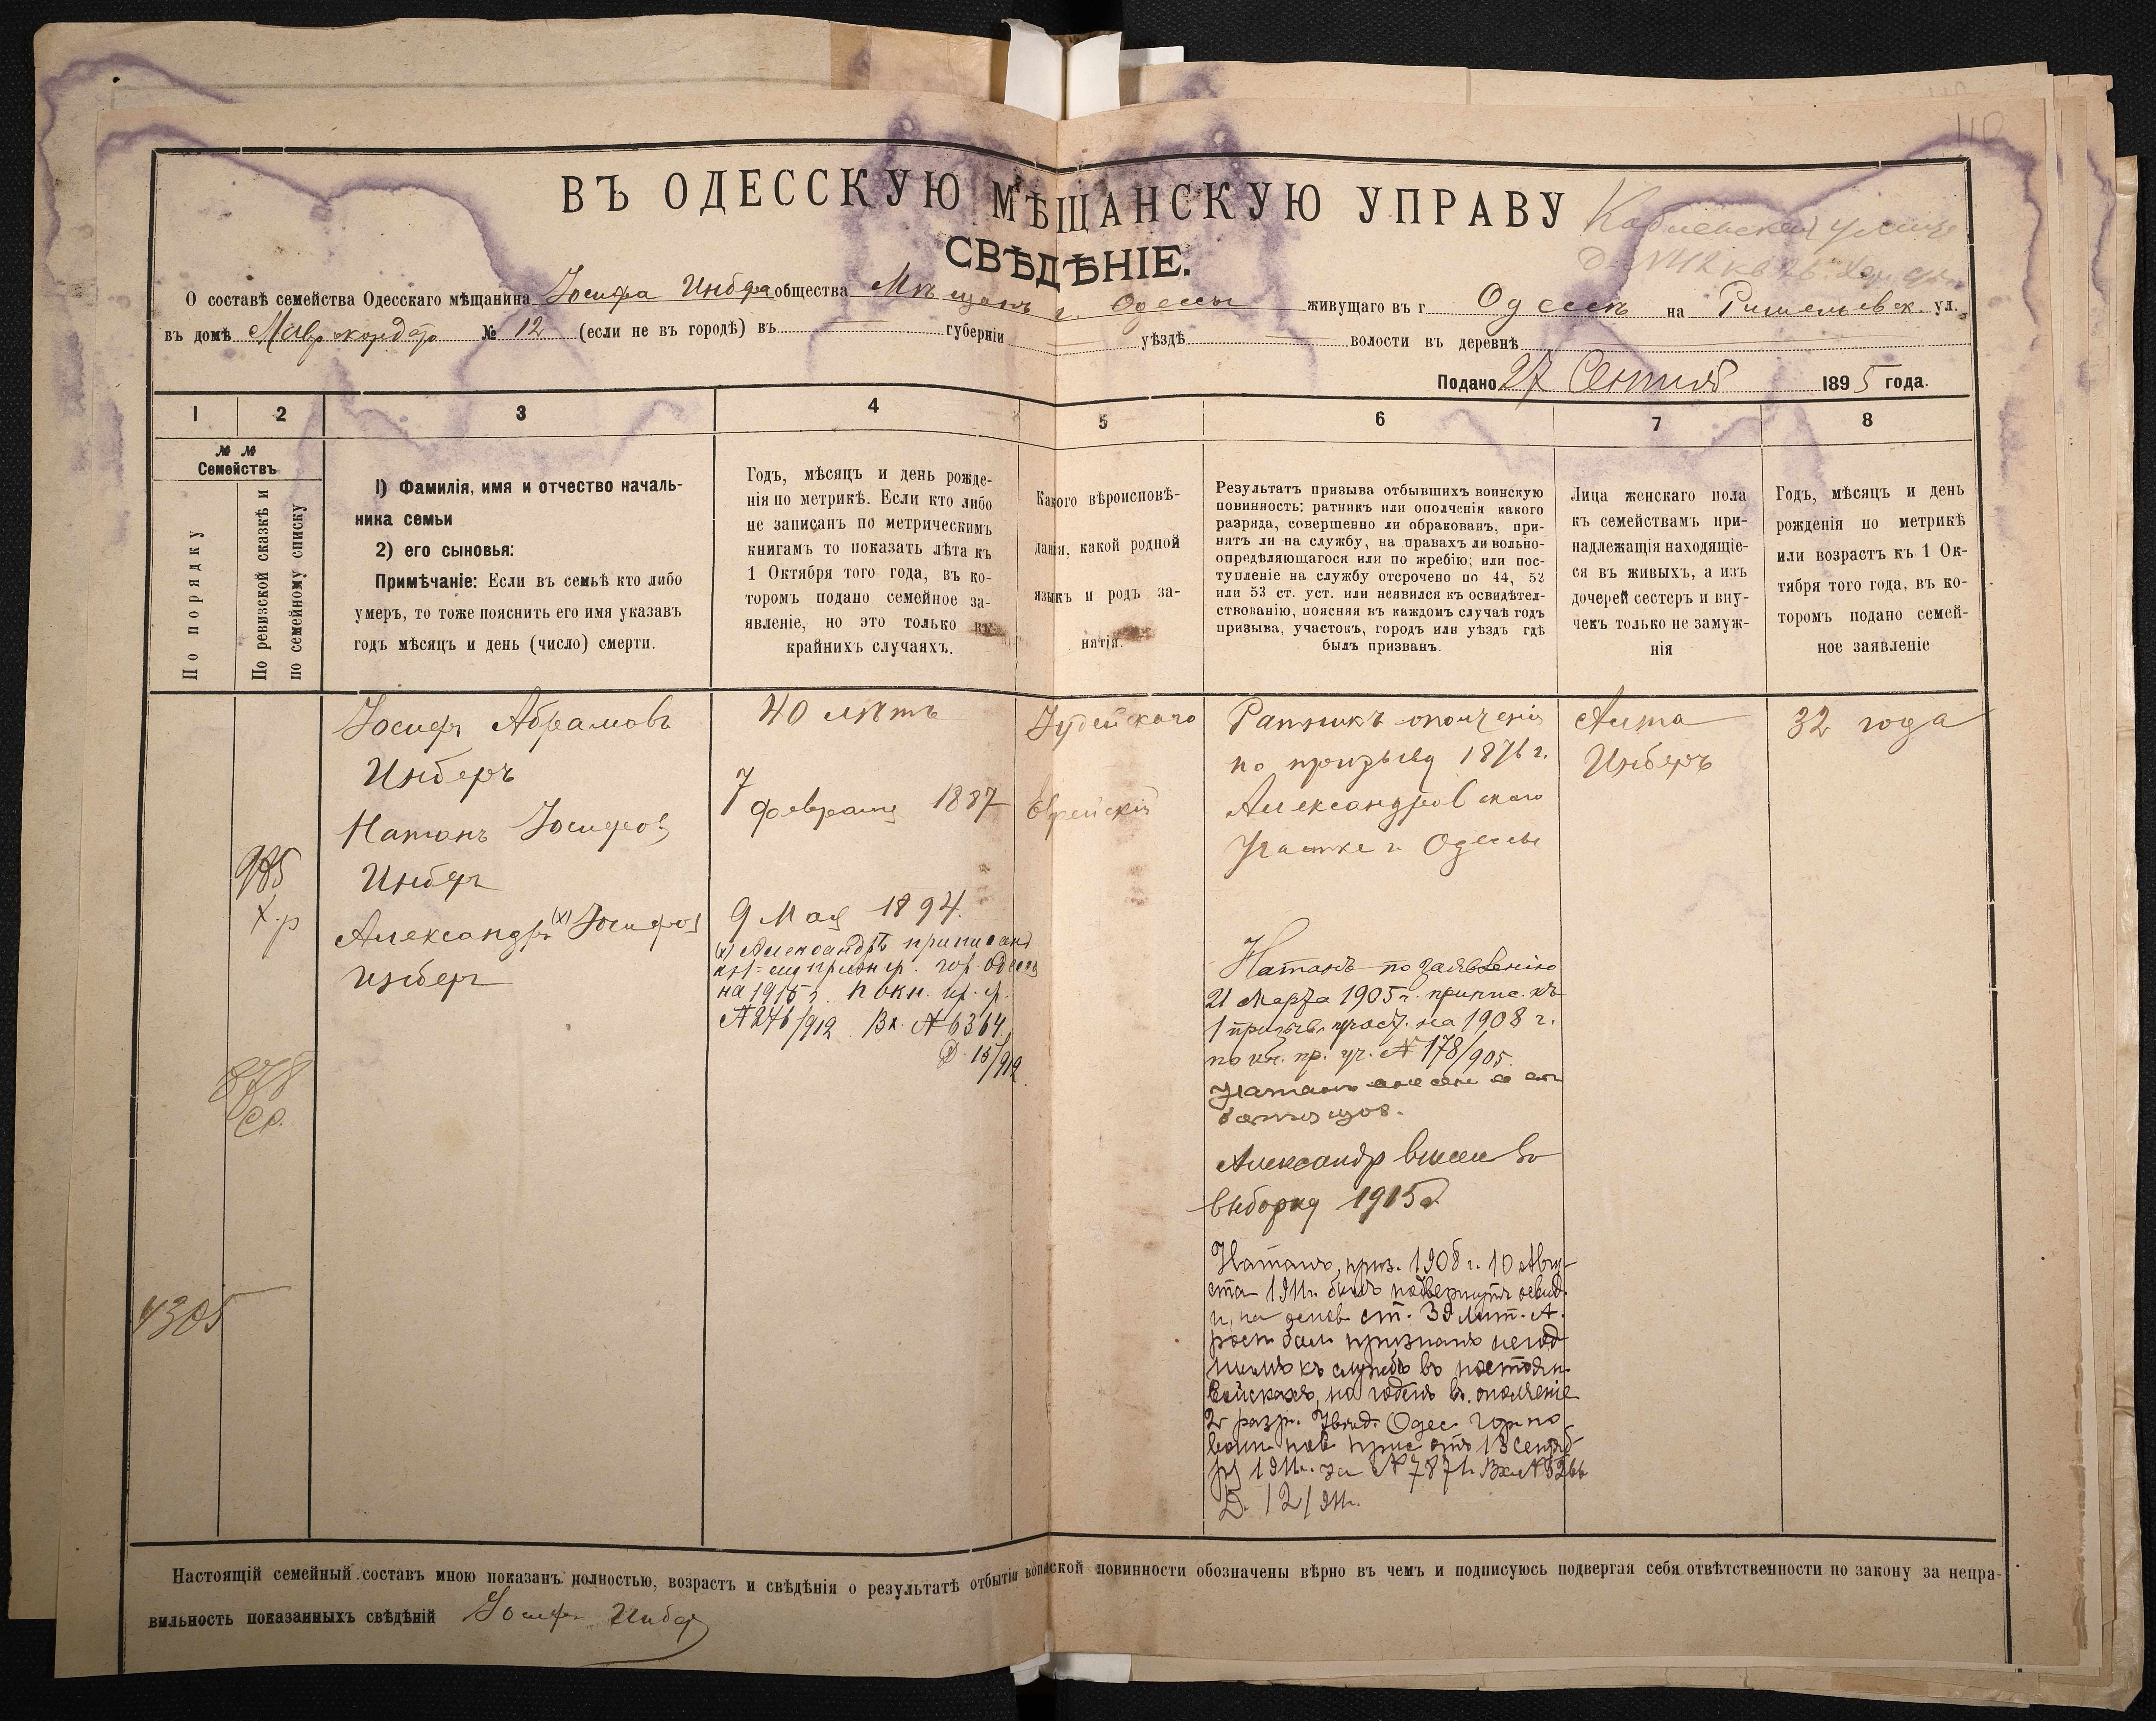 ВЪ ОДЕССКУЮ МѢЩАНСКУЮ УПРАВУ
СВѢДѢНІЕ.
О составѣ семейства Одесскаго мѣщанина Іосифа Инбера общества Мѣщанъ г. Одессы живущаго въ г. Одессѣ на Ришельевск. ул.
въ домѣ Маврокордато № 12 (если не въ городѣ) въ губерніи уѣздѣ волости въ деревнѣ
Подано 27 Сентяб 1895 года.
1 2 3 4 5 6 7 8
№ №
Семействъ
По порядку
По ревизской сказкѣ и
по семейному списку
1) Фамилія, имя и отчество началь-
ника семьи
2) его сыновья:
Примѣчаніе: Если въ семьѣ кто либо
умеръ, то тоже пояснить его имя указавъ
годъ мѣсяцъ и день (число) смерти.
Годъ, мѣсяцъ и день рожде-
нія по метрикѣ. Если кто либо
не записанъ по метрическимъ
книгамъ то показать лѣта къ
1 Октября того года, въ ко-
торомъ подано семейное за-
явленіе, но это только въ
крайнихъ случаяхъ.
Какого вѣроисповѣ-
данія, какой родной
языкъ и родъ за-
нятія.
Результатъ призыва отбывшихъ воинскую
повинность: ратникъ или ополченія какого
разряда, совершенно ли обракованъ, при-
нятъ ли на службу, на правахъ ли вольно-
опредѣляющагося или по жребію; или пос-
тупленіе на службу отсрочено по 44, 52
или 53 ст. уст. или неявился къ освидѣтел-
ствованію, поясняя въ каждомъ случаѣ годъ
призыва, участокъ, городъ или уѣздъ гдѣ
былъ призванъ.
Лица женскаго пола
къ семействамъ при-
надлежащія находящіе-
ся въ живыхъ, а изъ
дочерей сестеръ и вну-
чекъ только не замуж-
нія
Годъ, мѣсяцъ и день
рожденія по метрикѣ
или возрастъ къ 1 Ок-
тября того года, въ ко-
торомъ подано семей-
ное заявленіе
985
878
4305
Іосифъ Абрамовъ
Инберъ
Натанъ Іосифов
Инберъ
Александръ (x) Іосифов
Инберъ
40 лѣтъ
7 февраля 1887
9 Мая 1894.
(x) Александръ приписанъ
гор. Одессы
на 1915 г. по кн.
№ 276/912 Вх. № 6364
Д. 15/912
Іудейскаго
Еврейскій
Ратникъ ополченія
по призыву 1876 г.
Александровскаго
Участка г. Одессы
Натанъ по заявленію
21 Марта 1905 г. припис. къ
1 призыв. участ. на 1908 г.
по кн. пр. уч. № 178/905.
Александр внесен во
выборку 1915 г.
Натанъ, приз. 1908 г. 10 Авгу-
ста 1911 г. былъ подвергнутъ освид.
и, на основ. ст. 39 Лит. А.
росп. бол. признанъ негод-
нымъ къ службѣ въ постоян.
войскахъ, но годенъ въ ополченіе
2 разр. Увѣд. Одес. Гор. по
воин. пов. прис. отъ 13 Сентяб-
ря 1911 г. за № 7871. Вх. № 5266
Д. 12/911 г.
Анта
Инберъ
32 года
Настоящій семейный составъ мною показанъ полностью, возрастъ и свѣдѣнія о результатѣ отбытія воинской повинности обозначены вѣрно въ чемъ и подписуюсь подвергая себя отвѣтственности по закону за непра-
вильность показанныхъ свѣдѣній Іосифъ Инбер